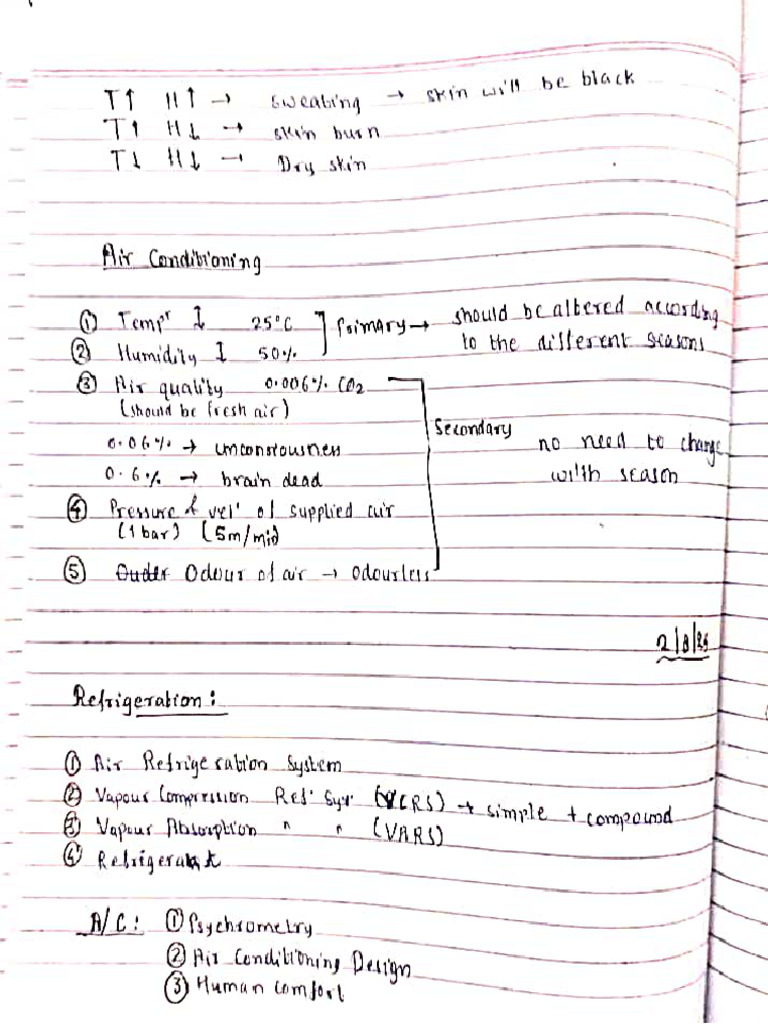 T↑ H↑ → sweating → skin will be black
T↑ H↓ → skin burn
T↓ H↓ → Dry skin
Air Conditioning
① Tempr ↕ 25°C
② Humidity ↕ 50%
Primary → should be altered according
to the different seasons
③ Air quality 0.006% CO2
(should be fresh air)
0.06% → unconstousness
0.6% → brain dead
Secondary no need to change
with season
④ Pressure & vel. of supplied air
(1 bar) (5m/mid)
⑤ Odour of air → odourless
Refrigeration:
① Air Refrigeration System
② Vapour Compression Ref. Sys. (VCRS) → simple + compound
③ Vapour Absorption " " (VARS)
④ Refrigerant
A/C: ① Psychrometry
② Air Conditioning Design
③ Human comfort